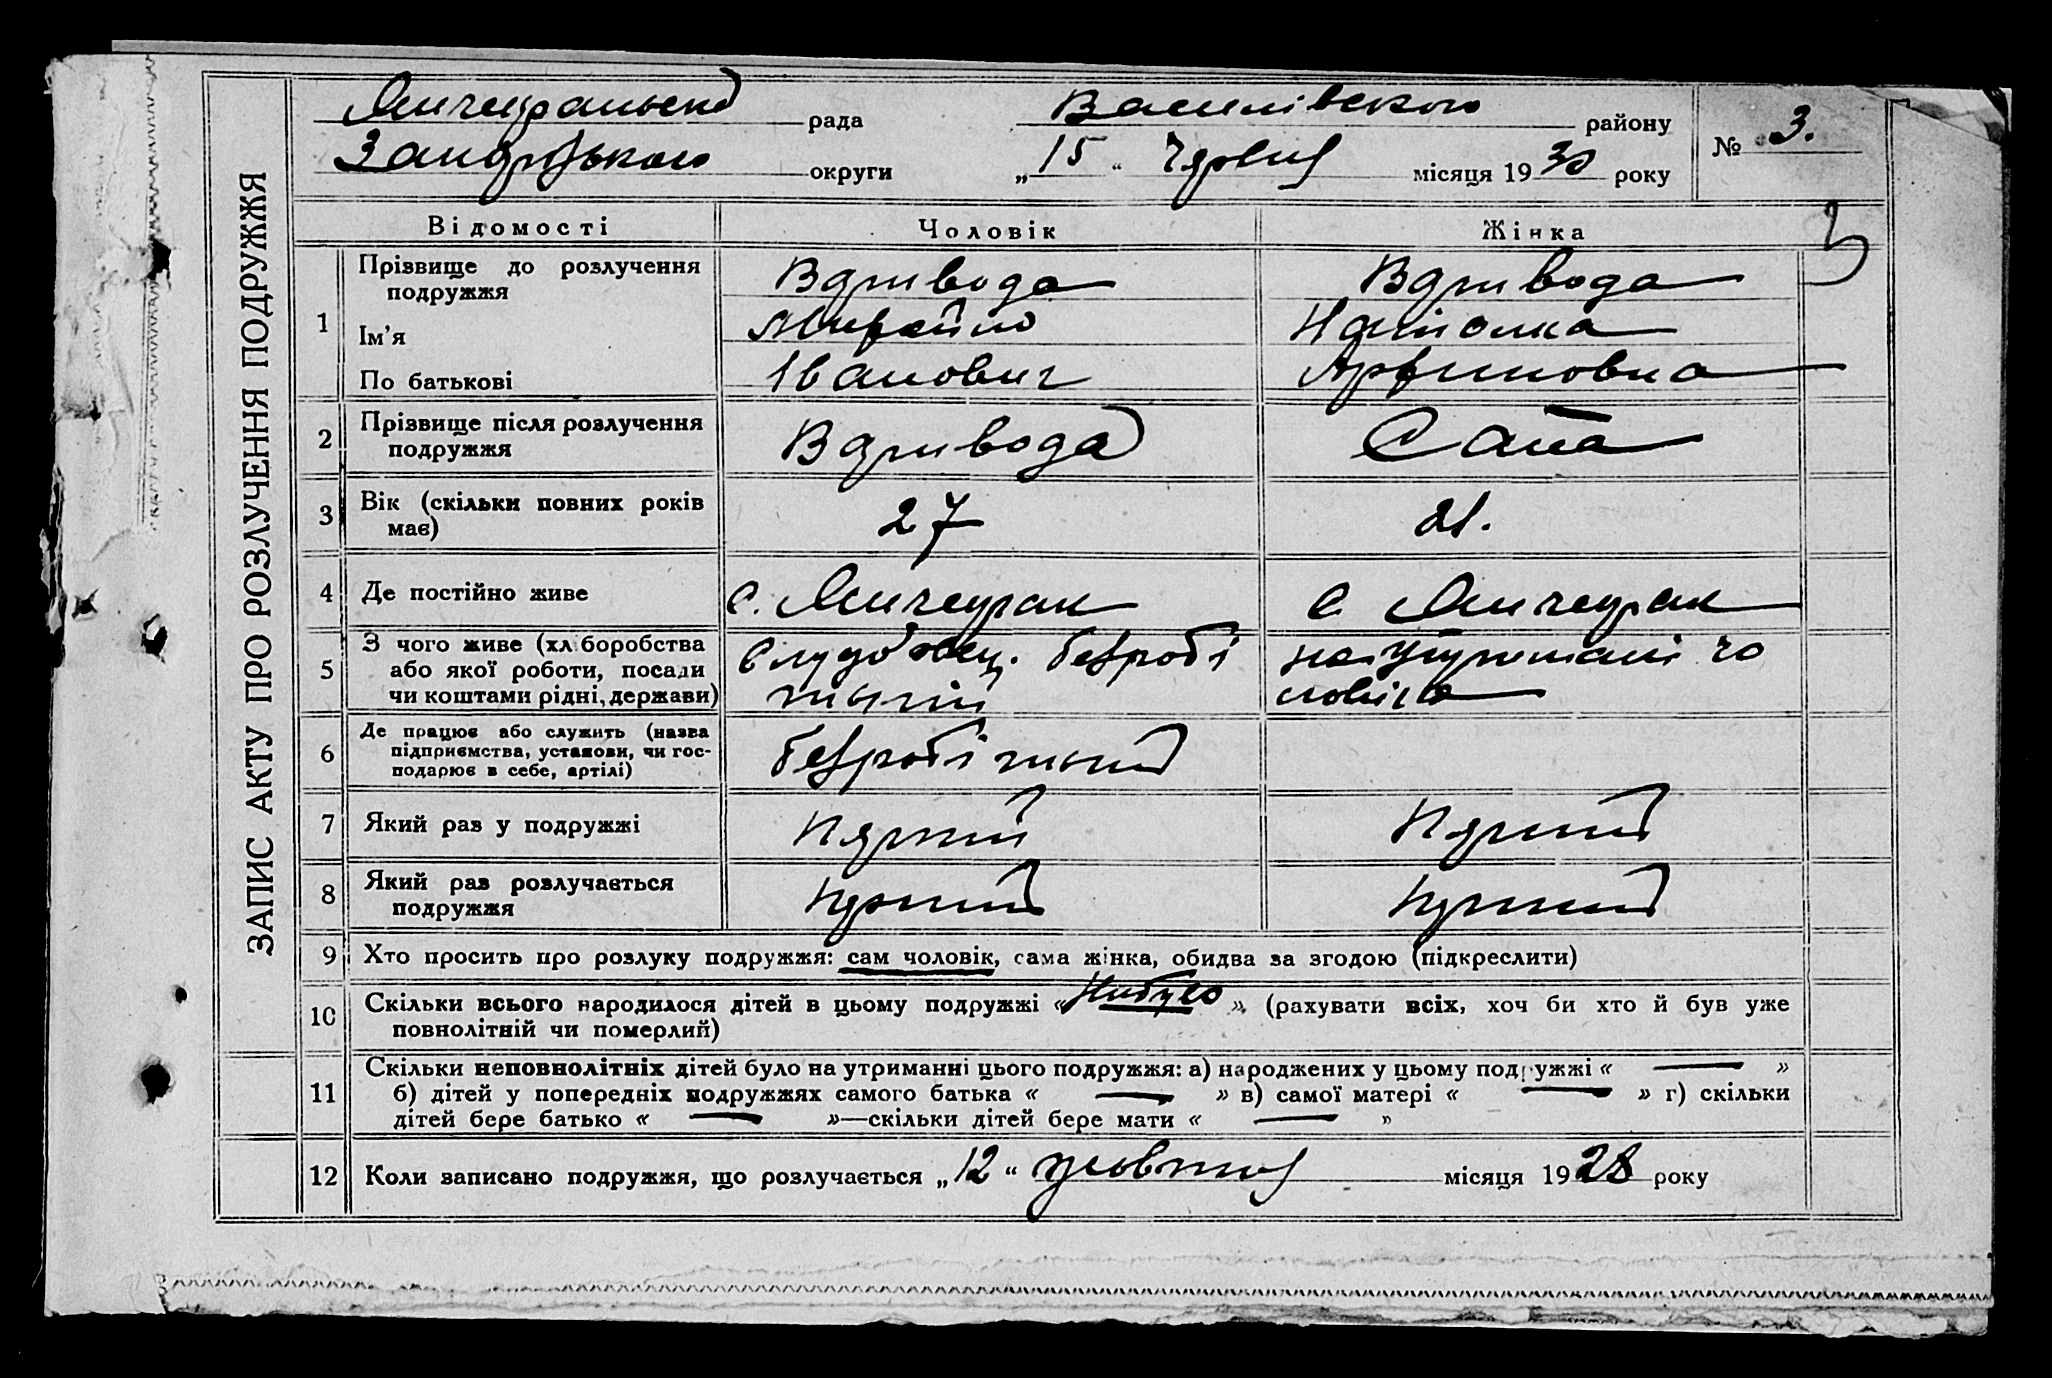 ЗАПИС АКТУ ПРО РОЗЛУЧЕННЯ ПОДРУЖЖЯ
рада Василівського району № 3.
округи „15“ червня місяця 1930 року
3
Відомості Чоловік Жінка
1 Прізвище до розлучення подружжя Вдривода Вдривода
Ім'я Михайло
По батькові Іванович
2 Прізвище після розлучення подружжя Вдривода Сапа
3 Вік (скільки повних років має) 27 21.
4 Де постійно живе с. с
5 З чого живе (хліборобства або якої роботи, посади чи коштами рідні, держави) безробі тный на утримані чо ловіка
6 Де працює або служить (назва підприємства, установи, чи господарює в себе, артілі) безробітный
7 Який раз у подружжі
8 Який раз розлучається подружжя
9 Хто просить про розлуку подружжя: сам чоловік, сама жінка, обидва за згодою (підкреслити)
10 Скільки всього народилося дітей в цьому подружжі « Нибуло » (рахувати всіх, хоч би хто й був уже
повнолітній чи померлий)
11 Скільки неповнолітніх дітей було на утриманні цього подружжя: а) народжених у цьому подружжі « — »
б) дітей у попередніх подружжях самого батька « — » в) самої матері « — » г) скільки
дітей бере батько « — »—скільки дітей бере мати « — »
12 Коли записано подружжя, що розлучається „12“ жовтня місяця 1928 року